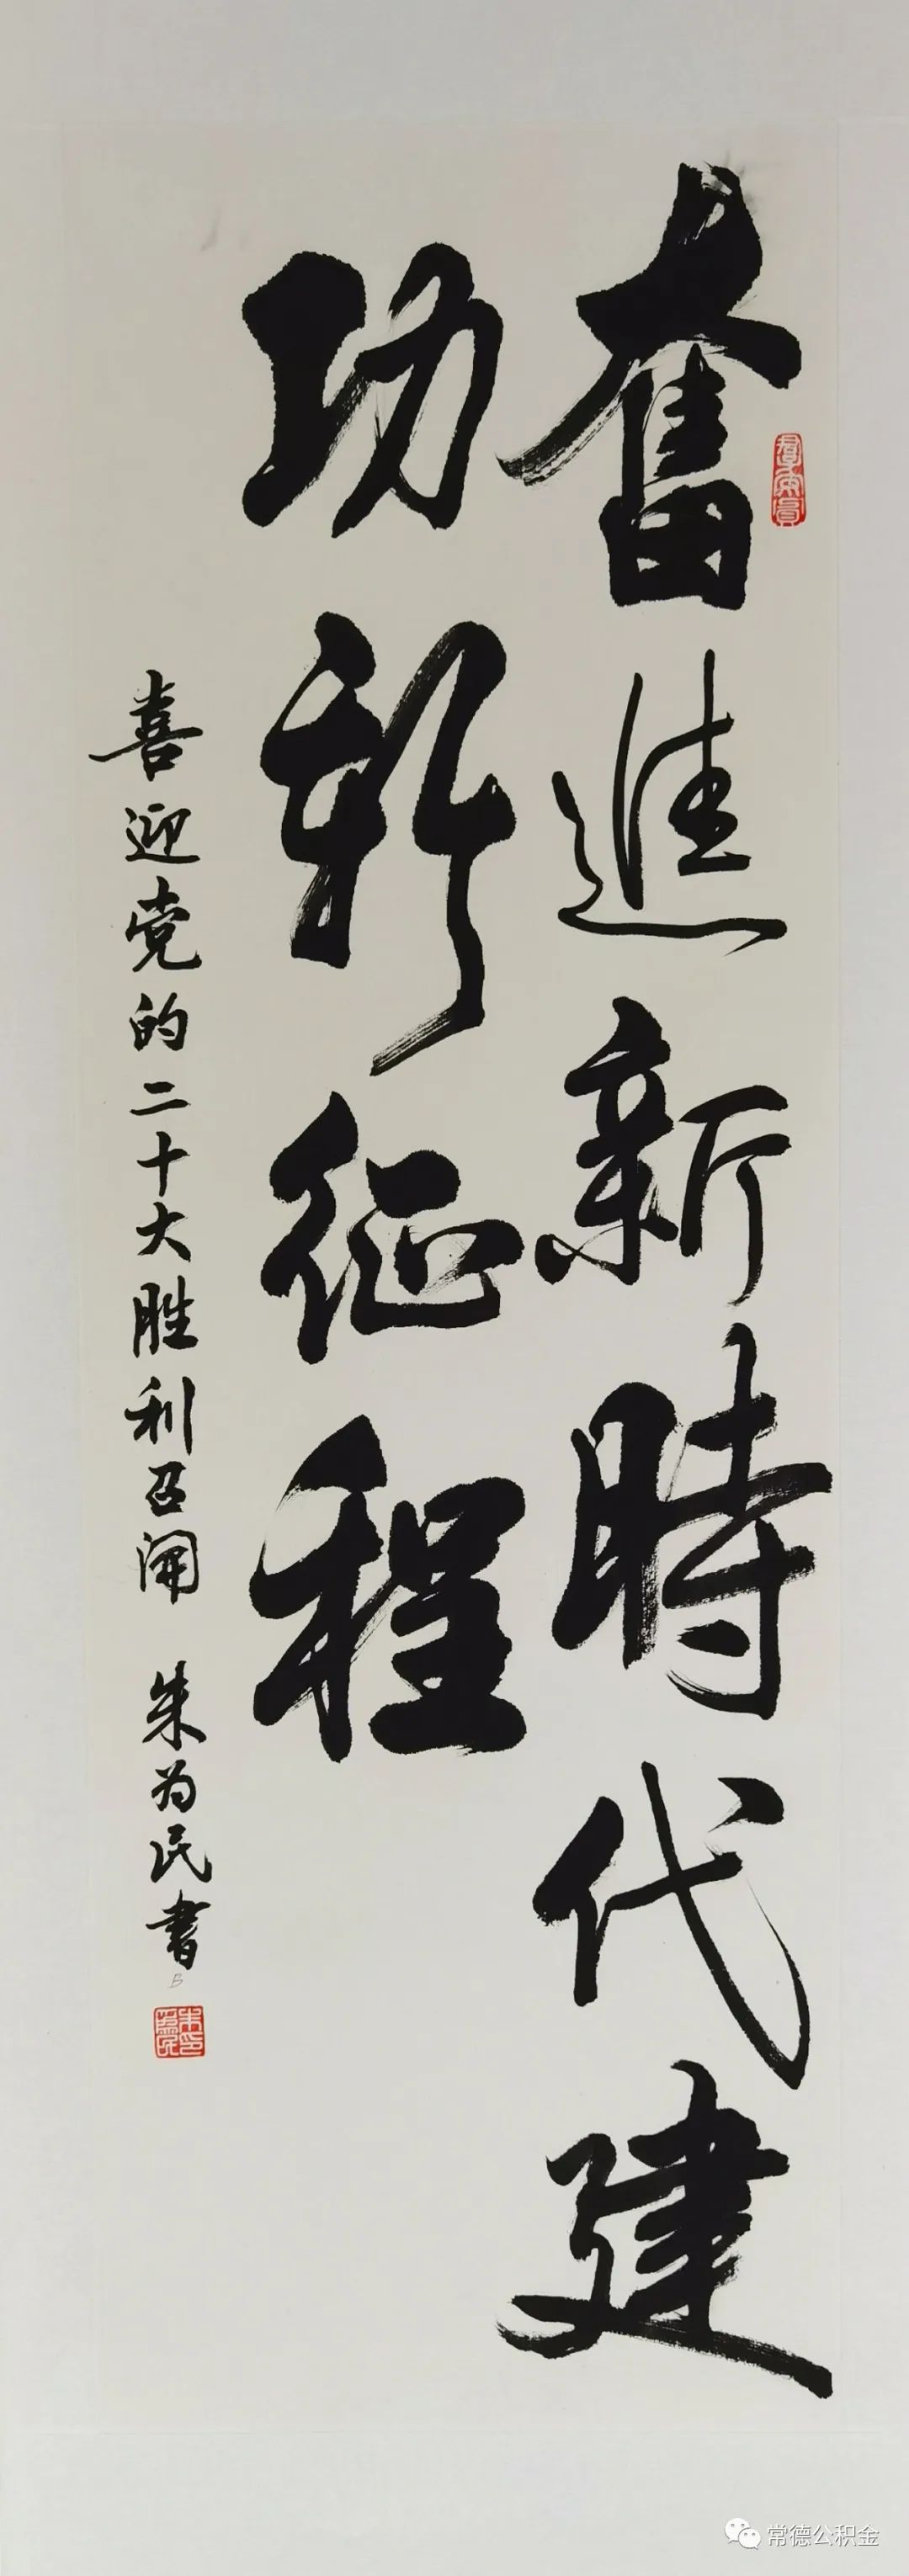 奮進新時代建
功新征程
喜迎党的二十大胜利召開 朱为民書
常德公积金